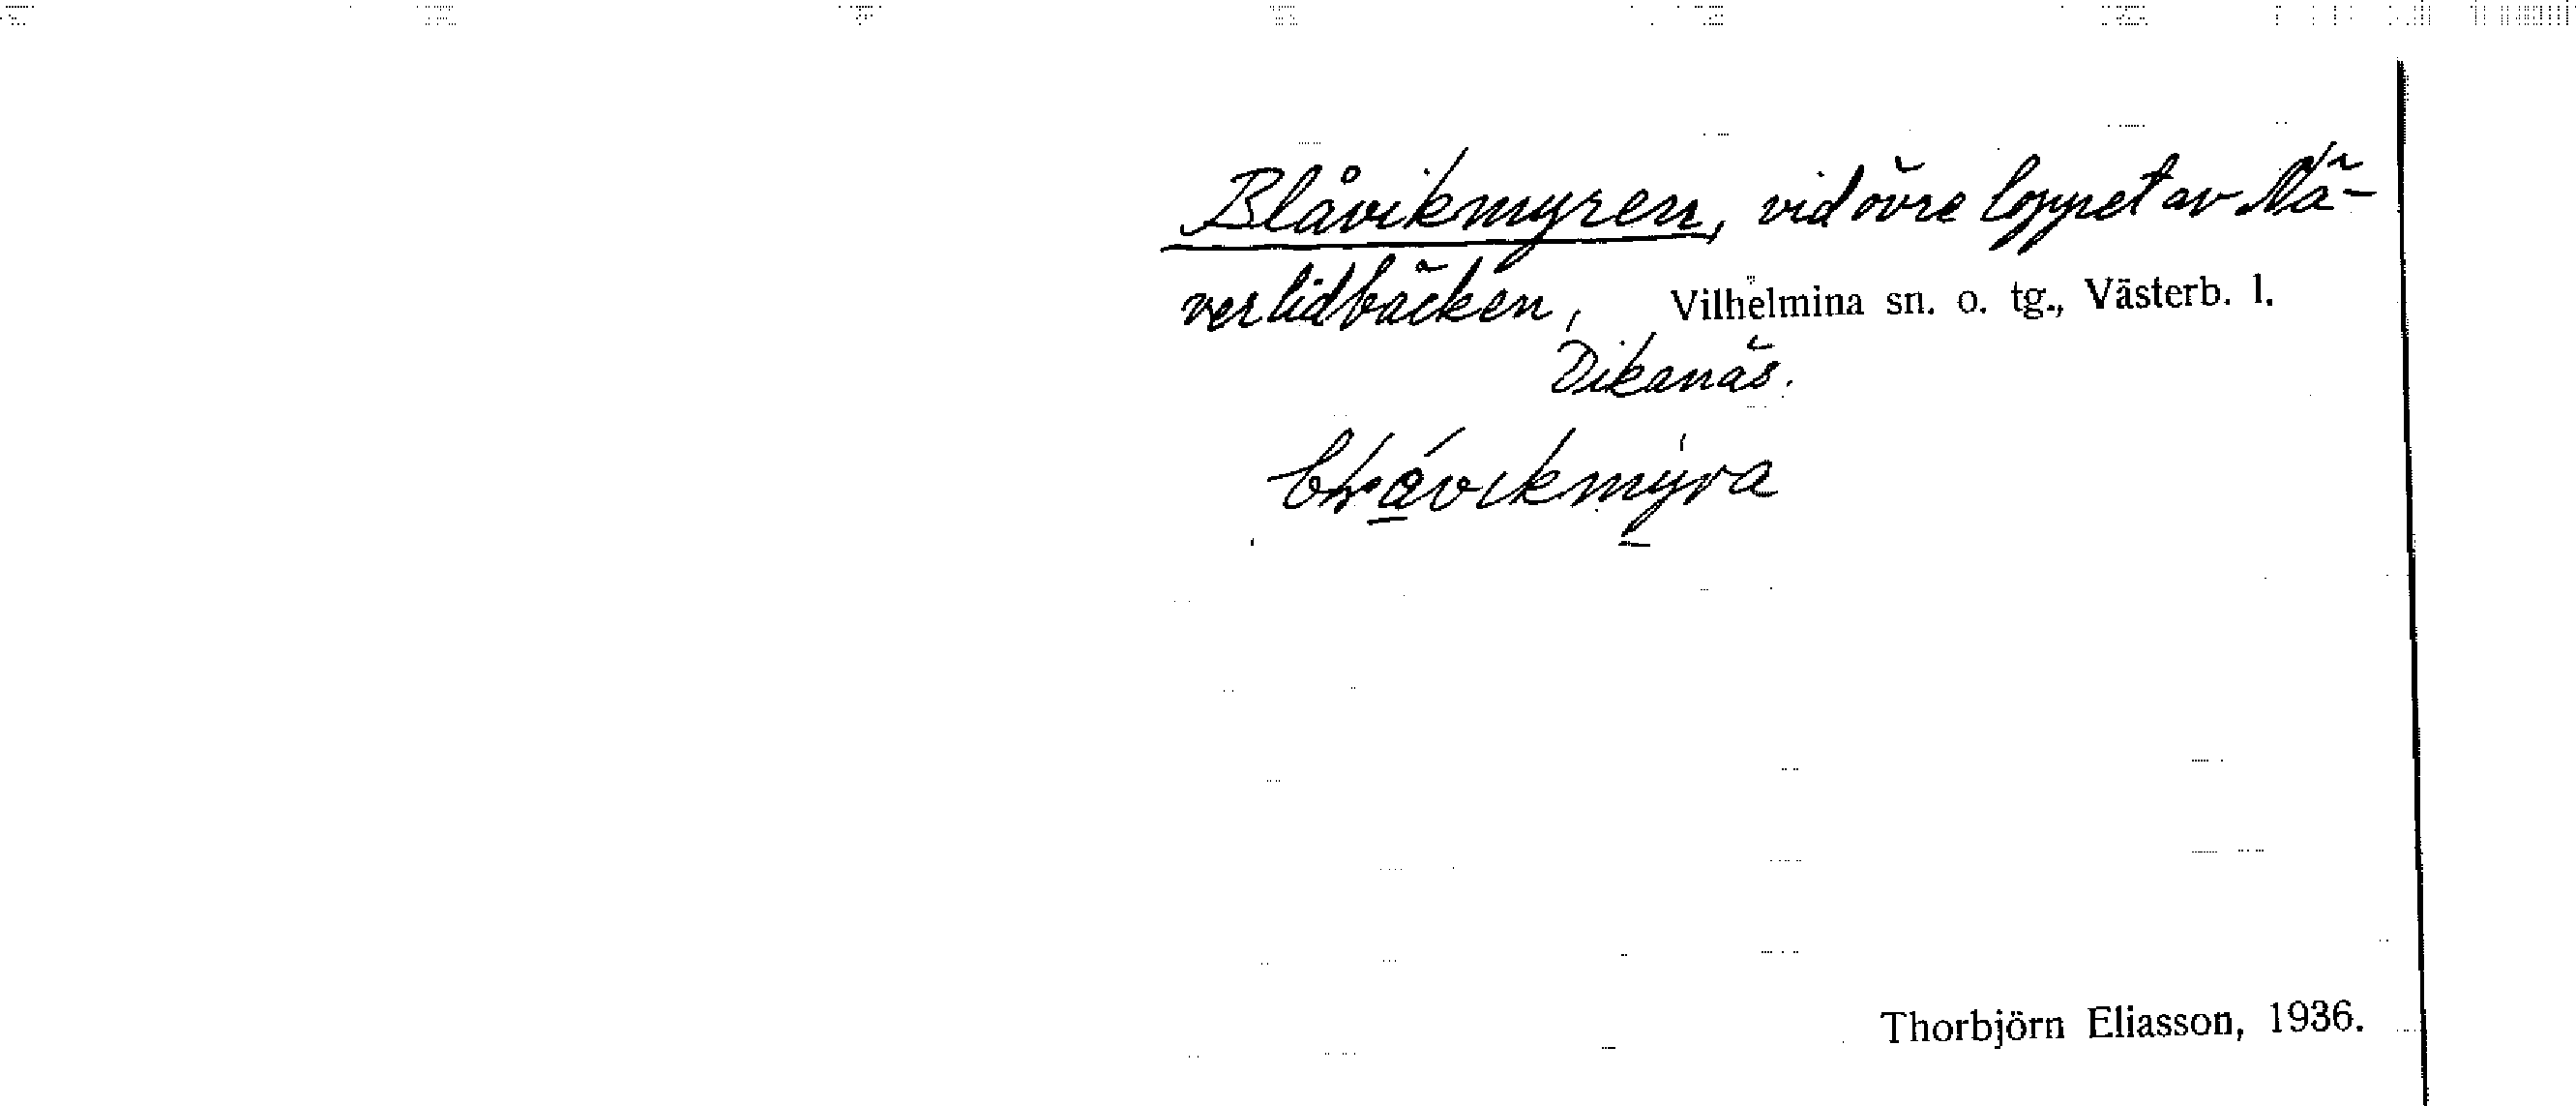 Blåvikmyren, vid övre loppet av Nä-
verlidbäcken, Vilhelmina sn. o. tg., Västerb. l.
Dikanäs.
Thorbjörn Eliasson, 1936.